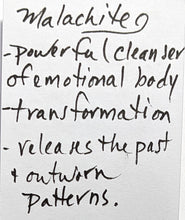 Malachite
-powerful cleanser
of emotional body
-transformation
- releases the past
& outworn
patterns.